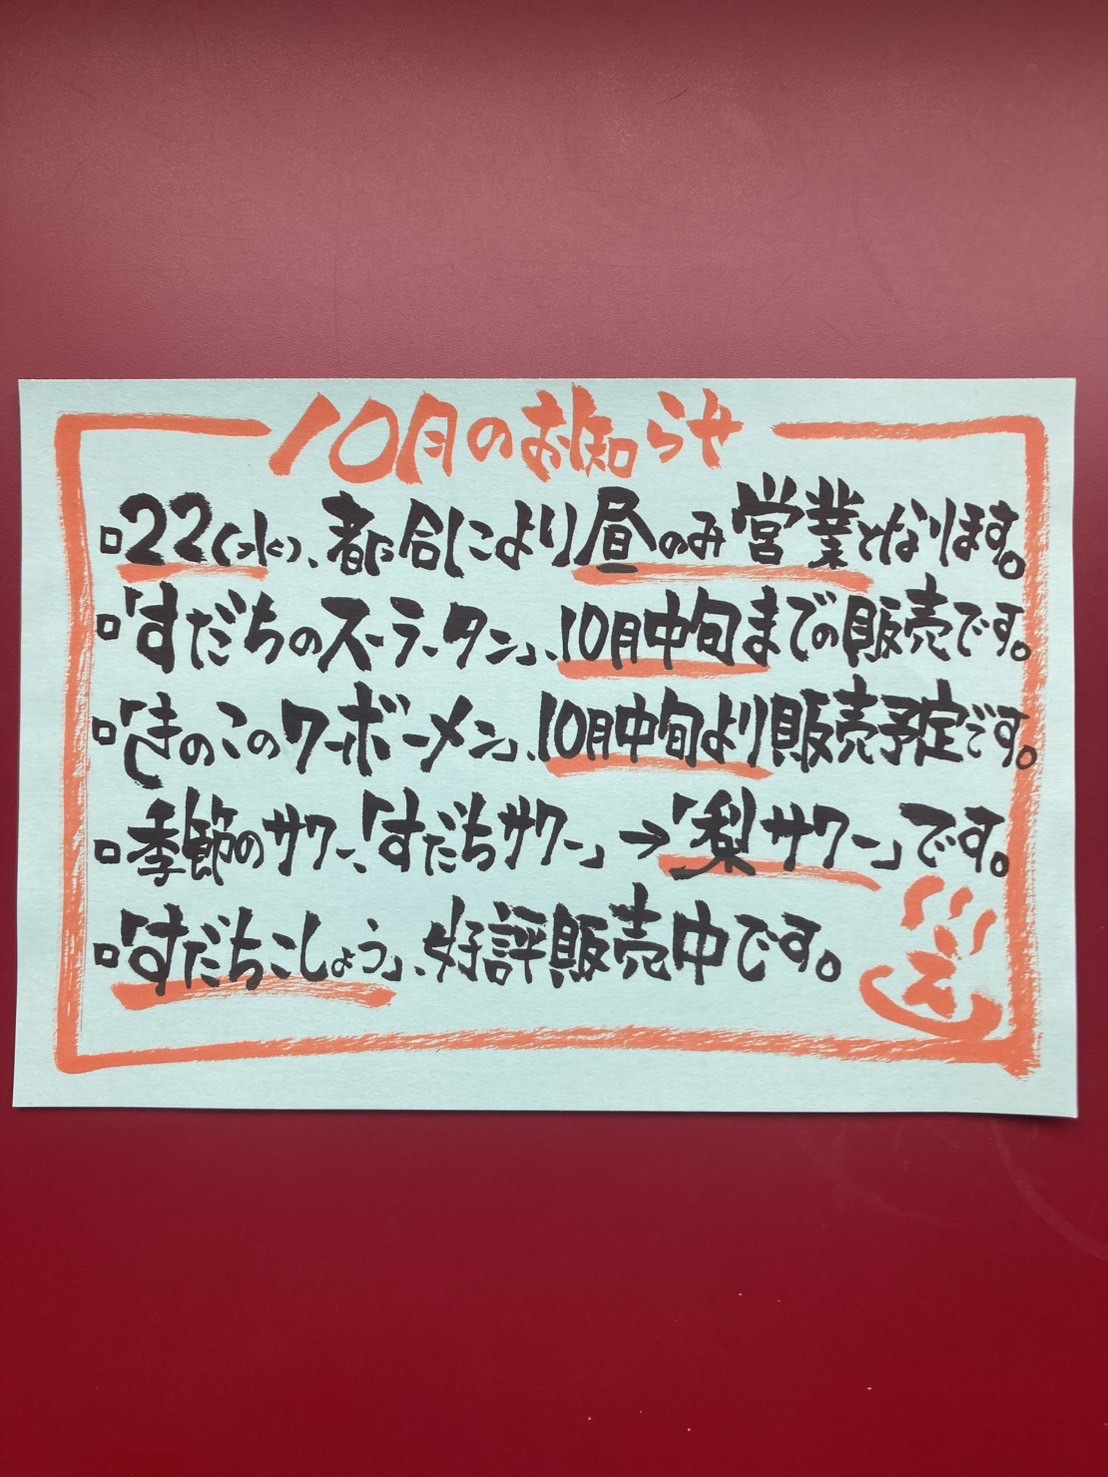 10月のお知らせ
□22(水)、都合により昼のみ営業となります。
□「すだちのスーラータン」、10月中旬までの販売です。
□「きのこのクーボーメン」、10月中旬より販売予定です。
□季節のサワー、「すだちサワー」→「梨サワー」です。
□「すだちこしょう」、好評販売中です。